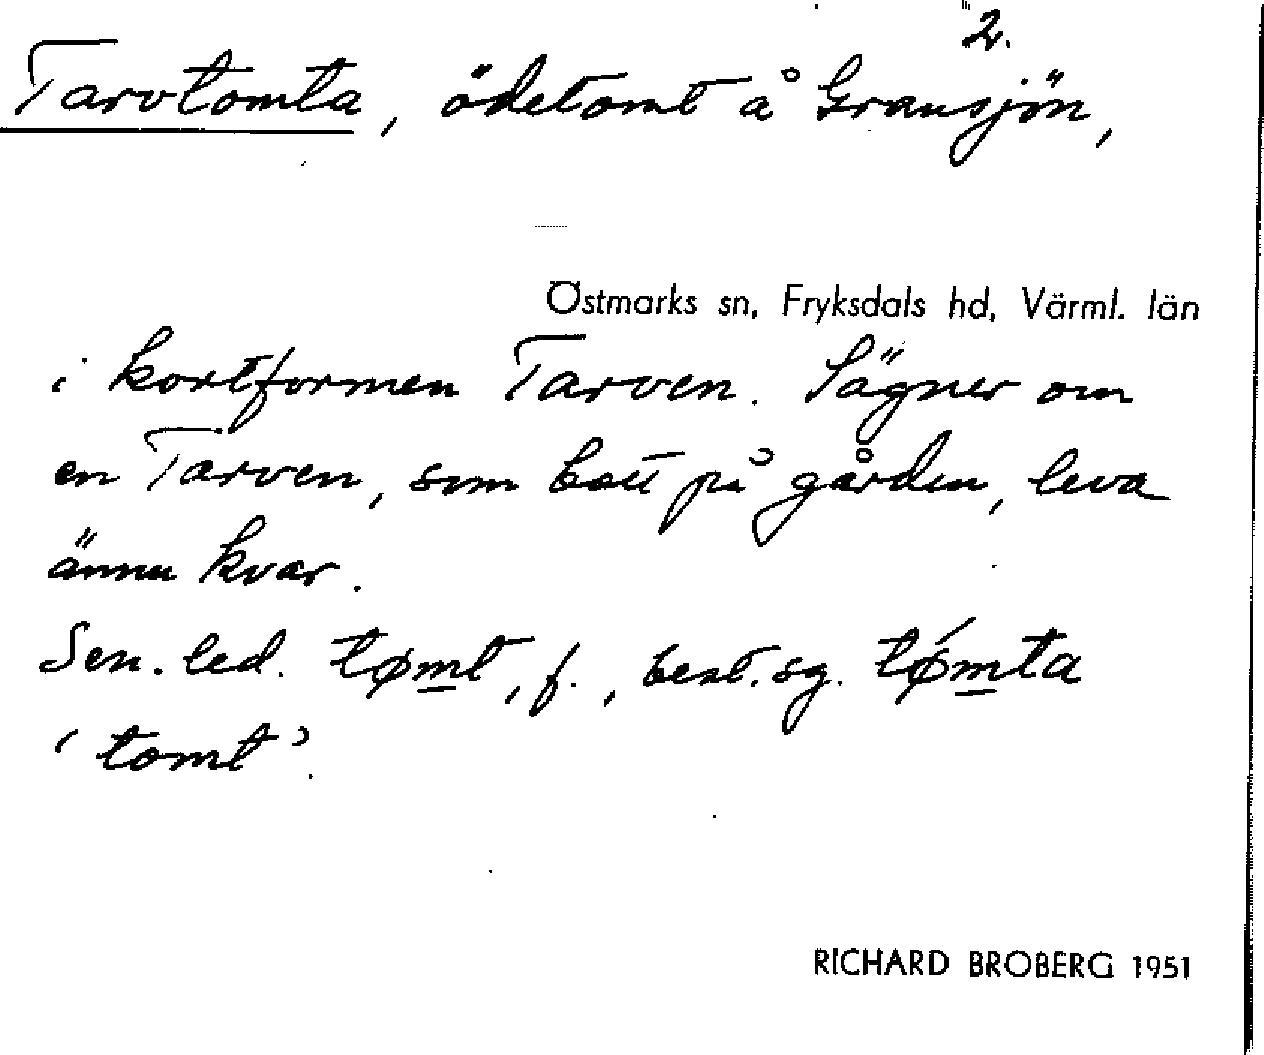 2.
Tarvtomta, ödetomt å Gransjön,
Östmarks sn, Fryksdals hd, Värml. län
i kortformen Tarven. Sägner om
en Tarven, som bott på gården, leva
ännu kvar.
Sen. led. tømt, f., best. sg. tǿmta
‘tomt’.
RICHARD BROBERG 1951